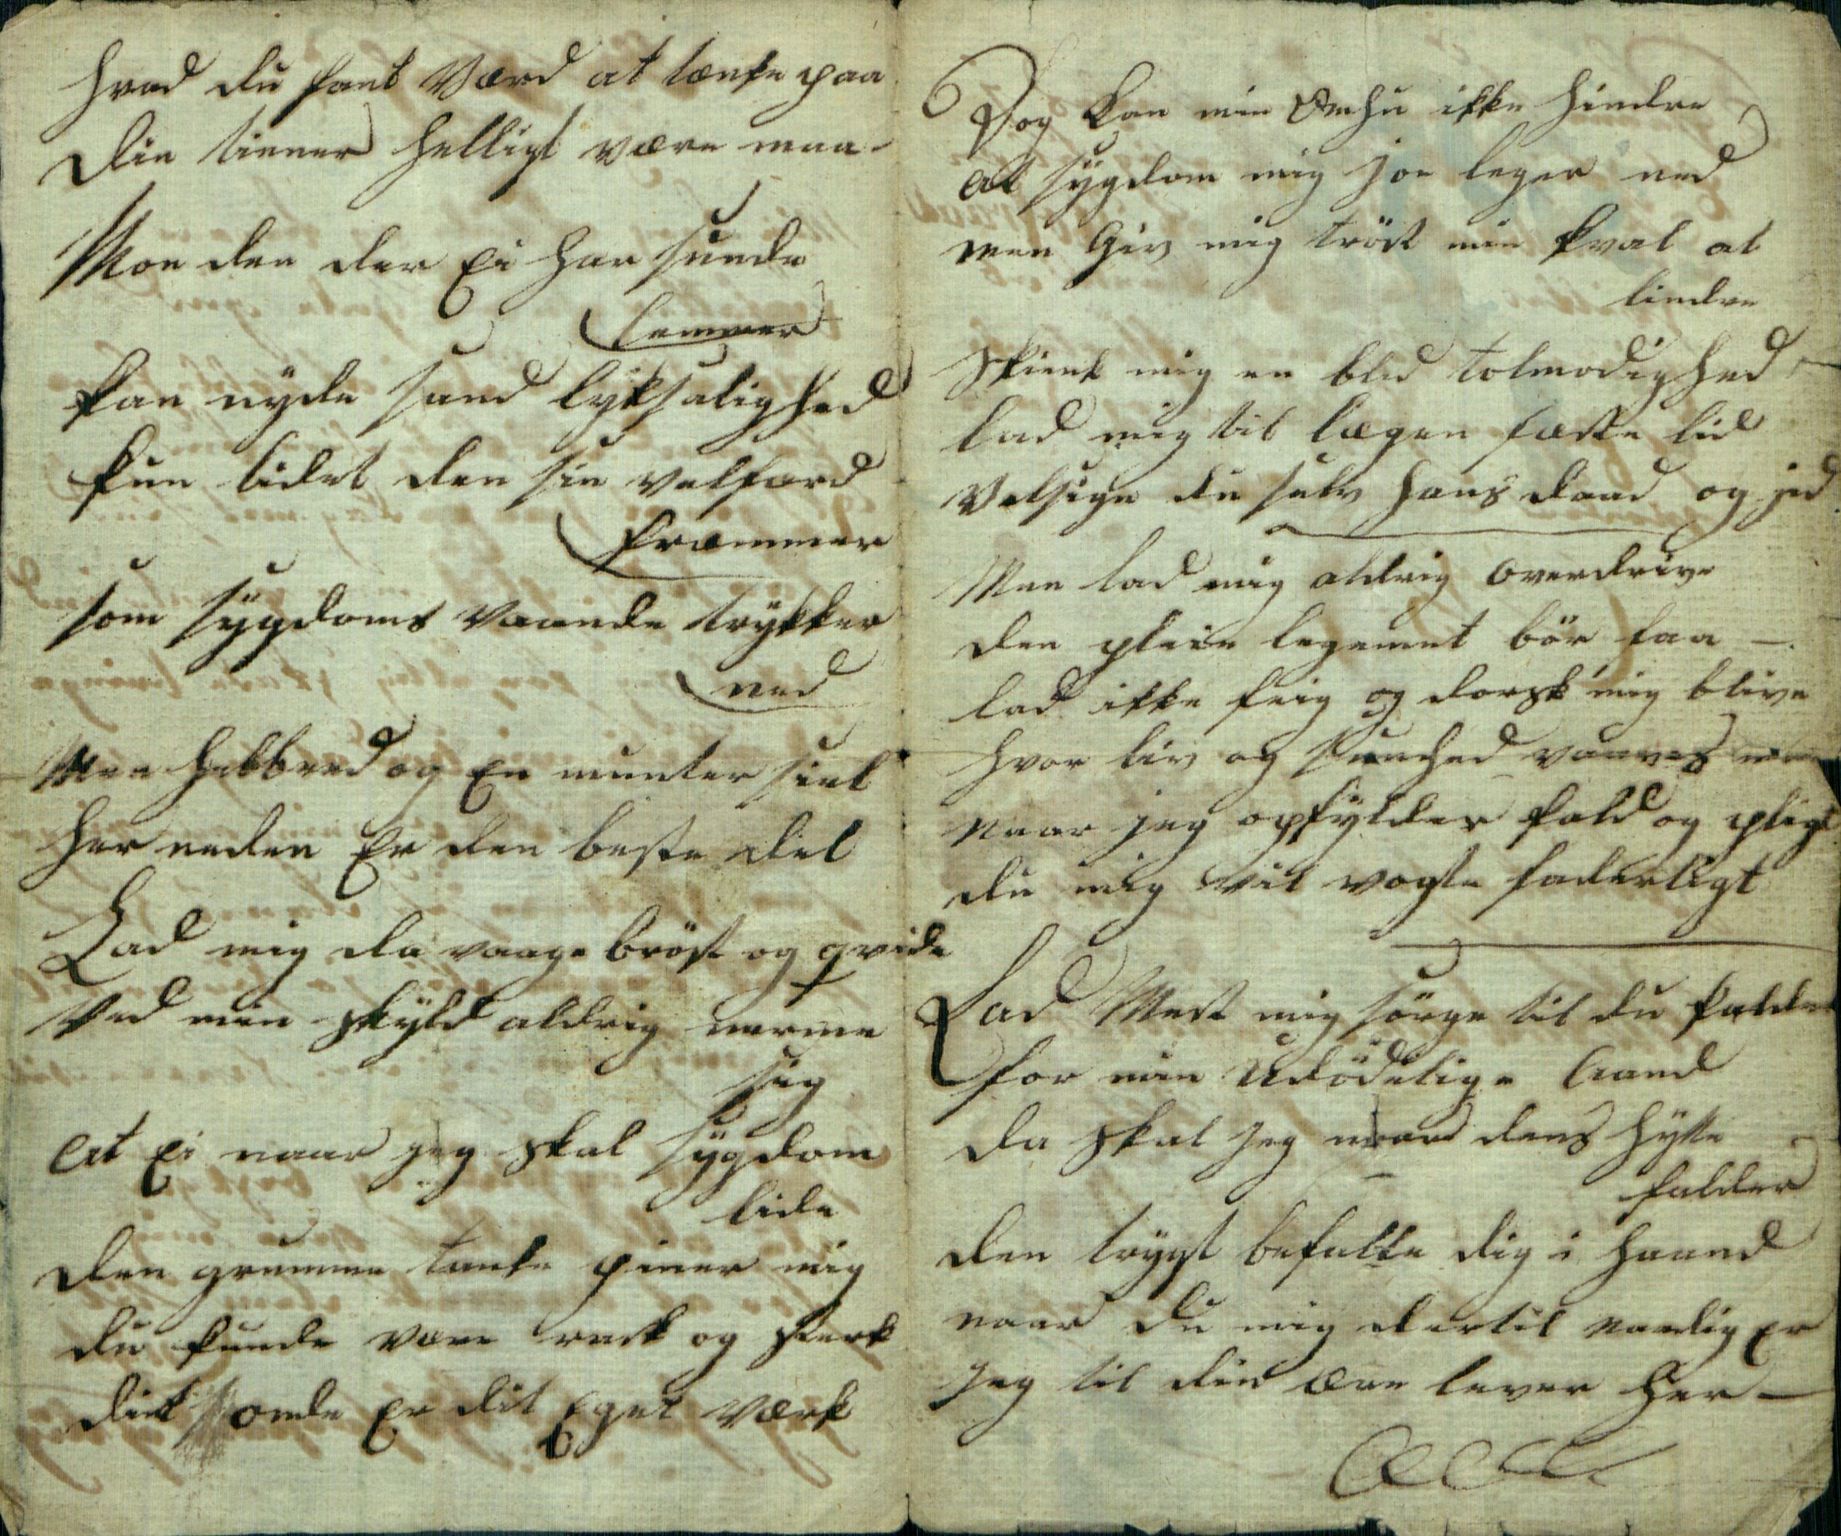 hvad du fant Værd at tænke paa
Din tienner helligt være maa
Mon den der Ei har sunde
Lemmer
kan nyde sand lyksalighed
kun lidet den sin velfærd
fræmmer
som sygdoms vaande trykker
ned
Men helbred og En munter siel
her neden Er den beste del
Lad mig da vaage bröst og qvide
Ved min skyld aldrig nerme
sig
At Ei naar jeg skal sygdom
lide
Den grumme tanke piner mig
du kunde være rask og sterk
dit onde Er dit Eget Værk
Dog kan min Omhu ikke hindre
At sygdom mig joe leger ned
men Giv mig tröst min kval at
lindre
Skienk mig en blid tolmodighed
lad mig til lægen fæste lid
Velsign du selv hans daad og jid
Men lad mig aldrig overdrive
den pleie legemet bör faa
lad ikke feig og dorsk mig blive
hvor liv og sunhed vaaves
Naar jeg opfylder kald og pligt
du mig vil vogte faderligt
Lad Mest mig sörge til du kalder
for min Udödelige Aand
da skal jeg naar dens hytte
falder
den trygt befalle dig i haand
naar du mig dertil værdig Er
Jeg til din ære lever her